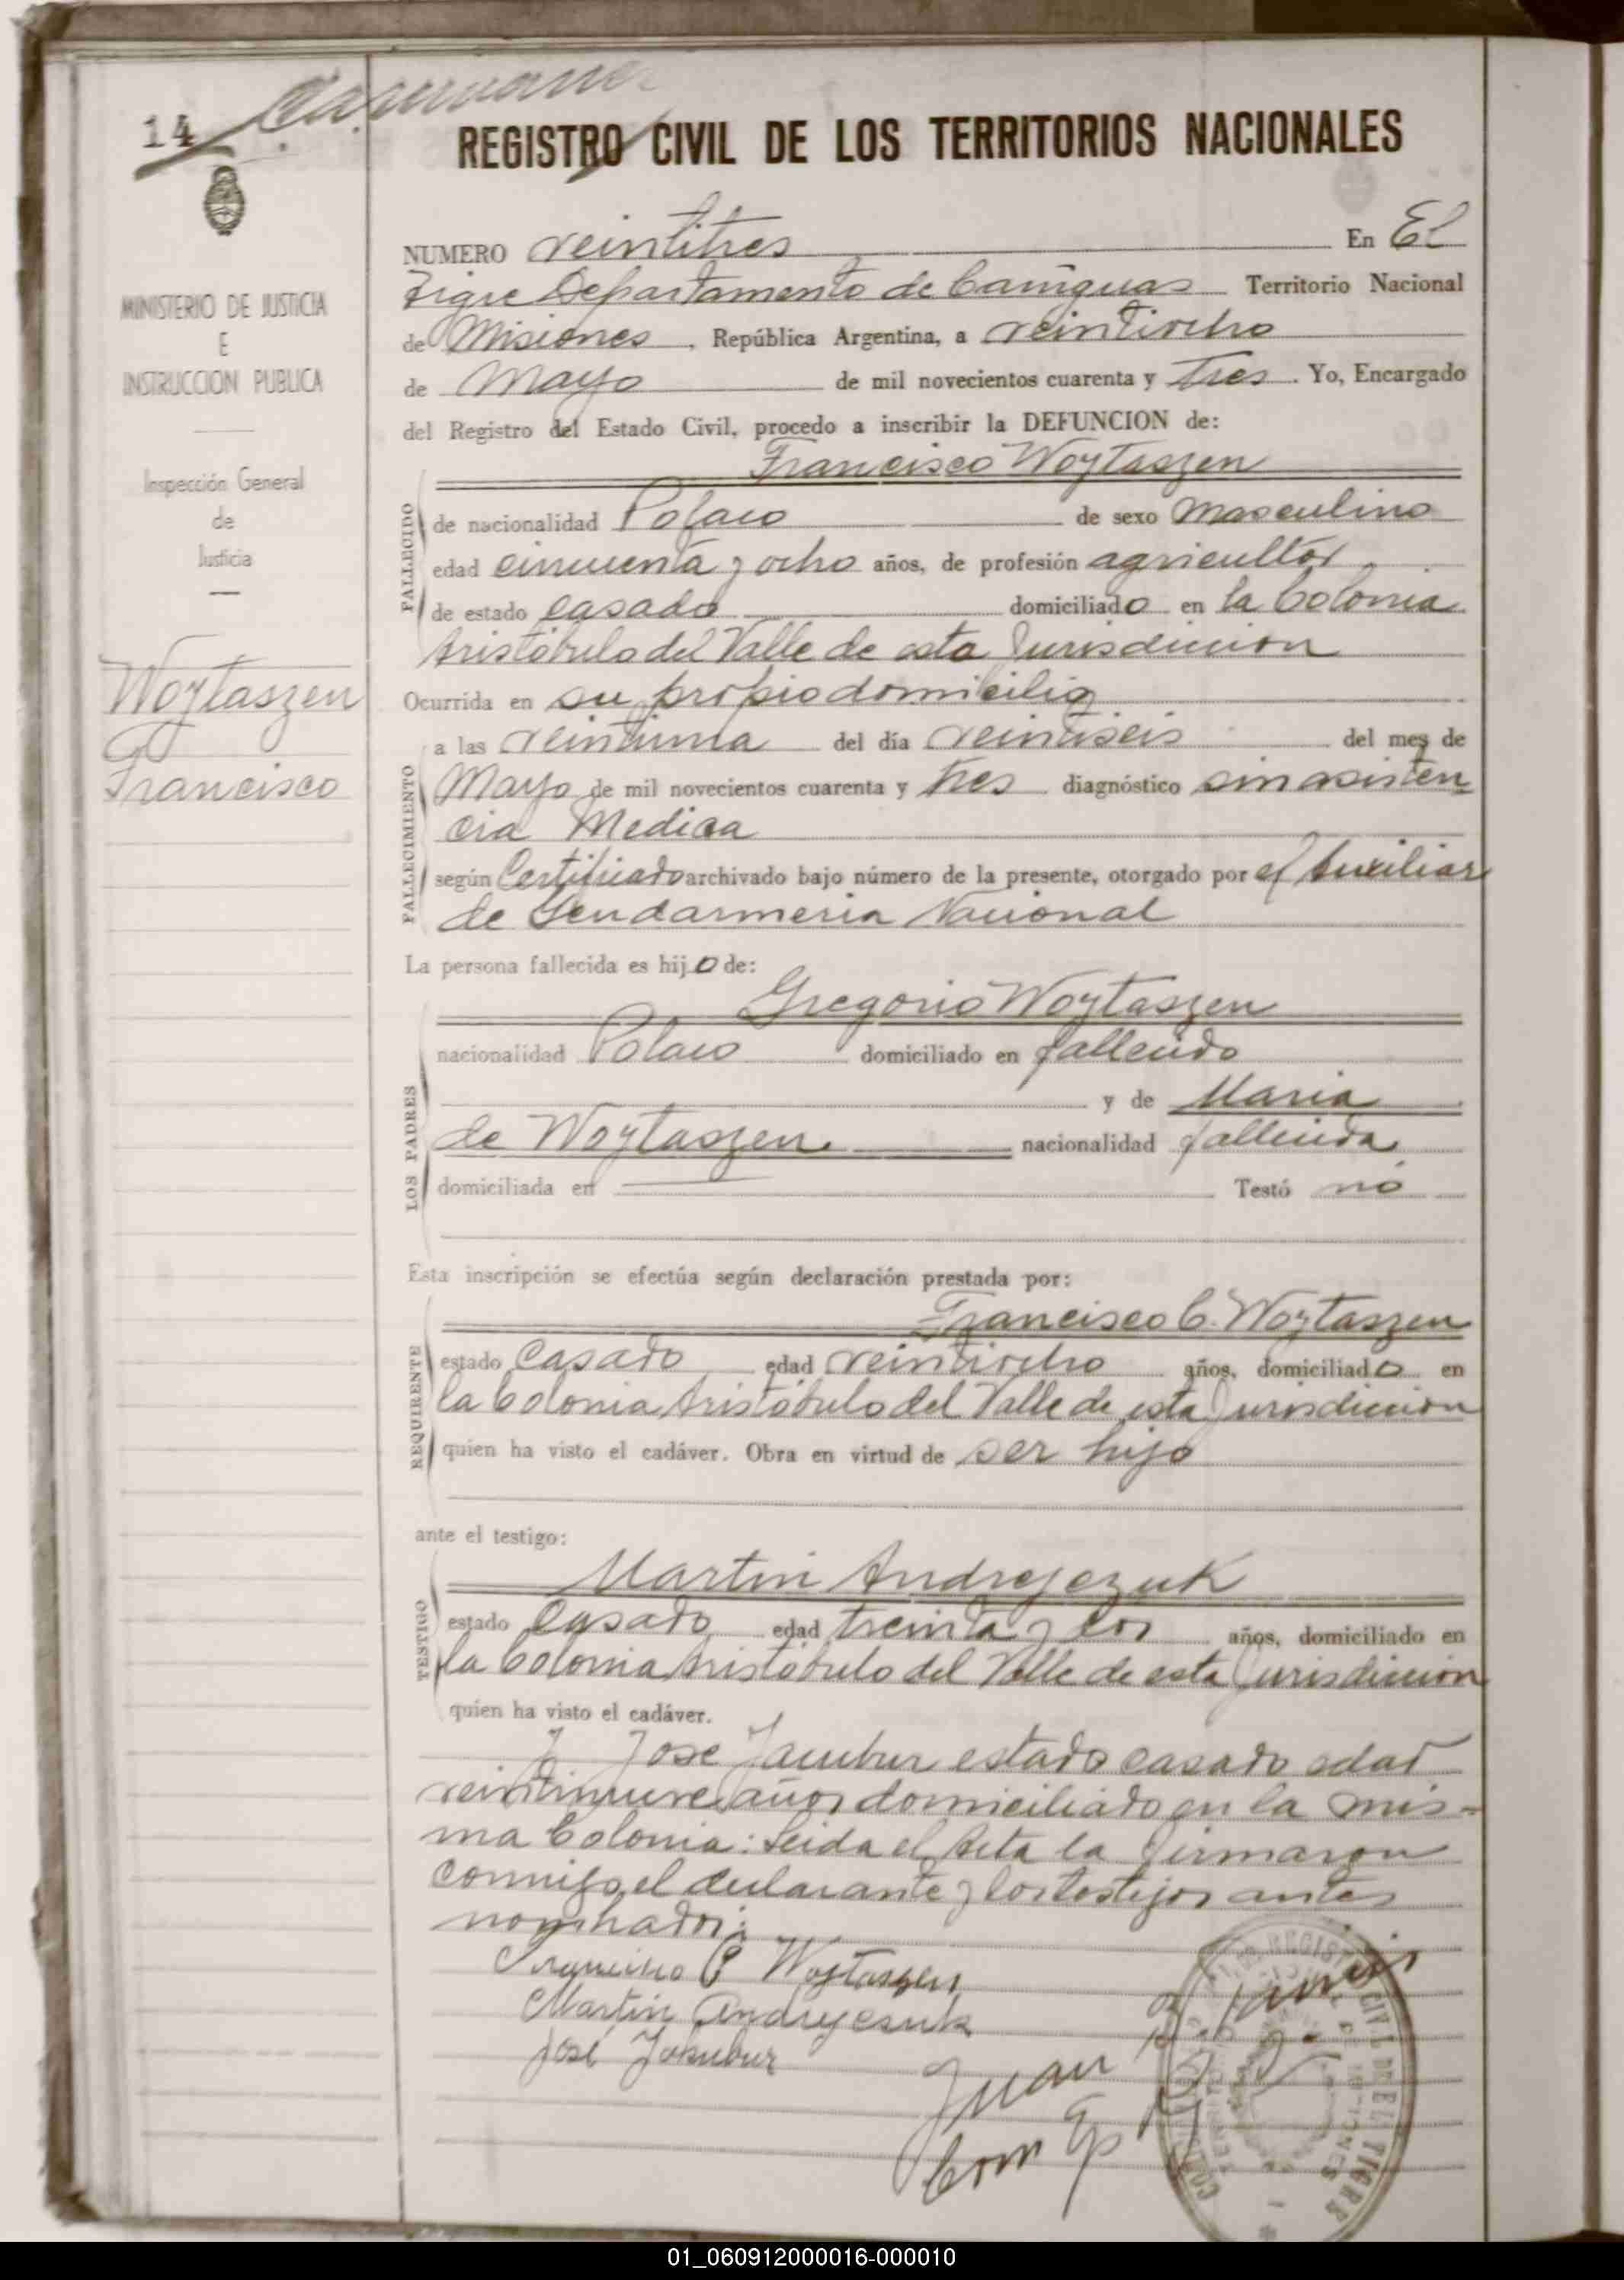 14
REGISTRO CIVIL DE LOS TERRITORIOS NACIONALES
MINISTERIO DE JUSTICIA
E
INSTRUCCION PUBLICA
Inspección General
de
Justicia
Woytaszen
Francisco
NUMERO veintitres En El
Tigre Departamento de Cainguas Territorio Nacional
de Misiones, República Argentina, a veintiocho
de Mayo de mil novecientos cuarenta y tres. Yo, Encargado
del Registro del Estado Civil, procedo a inscribir la DEFUNCION de:
Francisco Woytaszen
FALLECIDO
de nacionalidad Polaco de sexo masculino
edad cincuenta y ocho años, de profesión agricultor
de estado casado domiciliado en la Colonia
Aristóbulo del Valle de esta Jurisdicion
Ocurrida en su propio domicilio
FALLECIMIENTO
a las veintiuna del día veintiseis del mes de
Mayo de mil novecientos cuarenta y tres diagnóstico sin asisten
cia Medica
según Certificado archivado bajo número de la presente, otorgado por el Auxiliar
de Gendarmeria Nacional
La persona fallecida es hijo de:
LOS PADRES
Gregorio Woytaszen
nacionalidad Polaco domiciliado en fallecido
y de Maria
de Woytaszen nacionalidad fallecida
domiciliada en Testó no
Esta inscripción se efectúa según declaración prestada por:
REQUIRENTE
Francisco C. Woytaszen
estado casado edad veintiocho años, domiciliado en
la Colonia Aristóbulo del Valle de esta Jurisdicion
quien ha visto el cadáver. Obra en virtud de ser hijo
ante el testigo:
TESTIGO
Martin Andrejczuk
estado casado edad treinta y dos años, domiciliado en
la Colonia Aristóbulo del Valle de esta Jurisdicion
quien ha visto el cadáver.
y Jose estado casado edad
veintinueve años domiciliado en la mis-
ma Colonia: Leida el Acta la firmaron
conmigo el declarante y los testigos antes
nominados:
Francisco C Woytaszen
Martin
José
Juan
CIVIL DE EL TIGRE
MISIONES
01_060912000016-000010